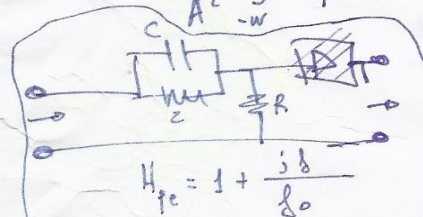 A²
-w
C
R
2
H_pe = 1 + jf / f_0